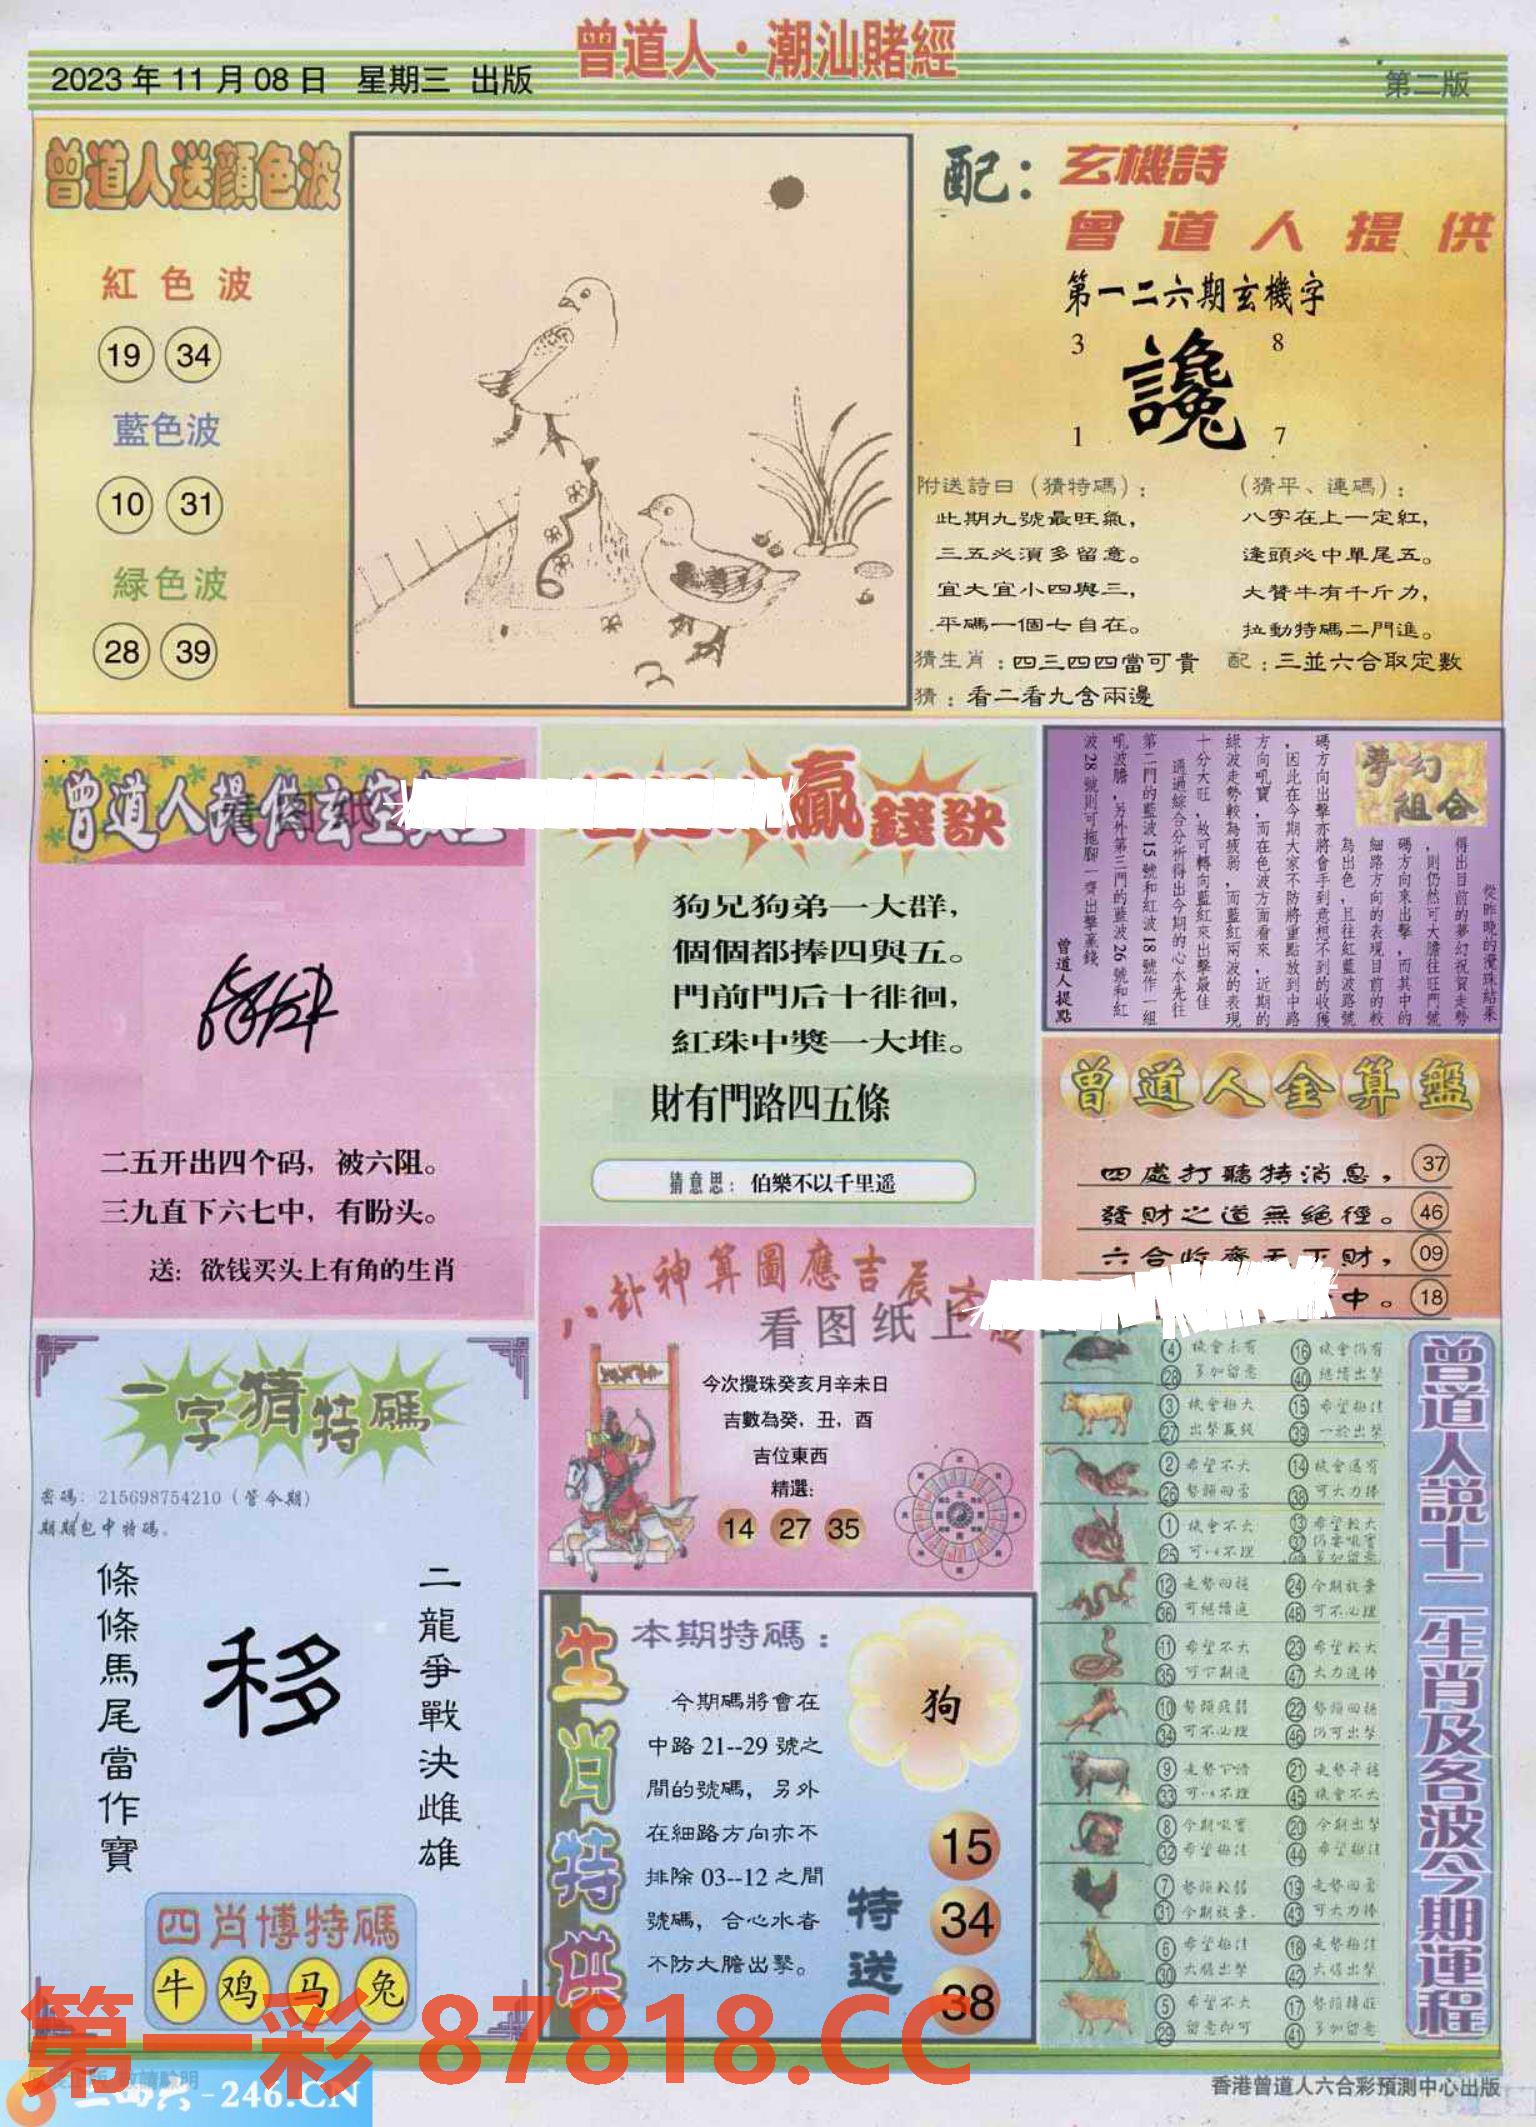 曾道人·潮汕賭經
2023年11月08日 星期三 出版
第二版
曾道人送顔色波
紅色波
19 34
藍色波
10 31
緑色波
28 39
配：玄機詩
曾道人提供
第一二六期玄機字
3 8
讒
1 7
附送詩日（猜特碼）：
此期九號最旺氣，
三五必須多留意。
宜大宜小四與三，
平碼一個七自在。
（猜平、連碼）：
八字在上一定紅，
逢頭必中單尾五。
大贊牛有千斤力，
拉動特碼二門進。
猜生肖：四三四四當可貴 配：三並六合取定數
猜：看二看九含兩邊
曾道人提供玄空
二五开出四个码，被六阻。
三九直下六七中，有盼头。
送：欲钱买头上有角的生肖
贏錢訣
狗兄狗弟一大群，
個個都捧四與五。
門前門后十徘徊，
紅珠中獎一大堆。
財有門路四五條
猜意思：伯樂不以千里遥
夢幻組合
從昨晚的攪珠結果
得出目前的夢幻祝賀走勢
，則仍然可大膽往旺門號
碼方向來出擊，而其中的
細路方向的表現目前的較
為出色，且往紅藍波路號
碼方向出擊亦將會手到意想不到的收獲
，因此在今期大家不防將重點放到中路
方向吼寶，而在色波方面看來，近期的
綠波走勢較為疲弱，而藍紅兩波的表現
十分大旺，故可轉向藍紅來出擊最佳
通過綜合分析得出今期的心水先往
第二門的藍波15號和紅波18號作一組
吼波膽，另外第三門的藍波26號和紅
波28號則可拖腳一齊出擊贏錢
曾道人提點
曾道人金算盤
四處打聽特消息， 37
發財之道無絕徑。 46
六合收齊天下財， 09
中。 18
八卦神算圖應吉辰
看图纸上
今次攪珠癸亥月辛未日
吉數為癸，丑，酉
吉位東西
精選：
14 27 35
一字猜特碼
密碼：215698754210（管今期）
期期包中特碼。
二龍爭戰決雌雄
移
條條馬尾當作寶
四肖博特碼
牛 鸡 马 兔
生肖特供
本期特碼：
今期碼將會在
中路21--29號之
間的號碼，另外
在細路方向亦不
排除03--12之間
號碼，合心水者
不防大膽出擊。
狗
特送
15
34
38
曾道人説十二生肖及各波今期運程
4 機會未有 16 機會仍有
28 多加留意 40 繼續出擊
3 機會極大 15 希望極佳
27 出擊贏錢 39 一於出擊
2 希望不大 14 機會還有
26 勢頭回落 38 可大力捧
1 機會不大 13 希望較大
25 可以不理
12 走勢回穩 24 今期放棄
36 可繼續追 48 可不必理
11 希望不大 23 希望較大
35 可下期追 47 大力追捧
10 勢頭疲弱 22 勢頭回穩
34 可不必理 46 仍可出擊
9 走勢下滑 21 走勢平穩
33 可以不理 45 機會不大
8 今期吼寶 20 今期出擊
32 希望極佳 44 希望極佳
7 勢頭較弱 19 走勢回落
31 今期放棄. 43 可大力捧
6 希望極佳 18 走勢極佳
30 大膽出擊 42 大膽出擊
5 希望不大 17 勢頭轉旺
29 留意即可 41 多加留意
第一彩 87818.CC
二四六-246.CN
香港曾道人六合彩預測中心出版